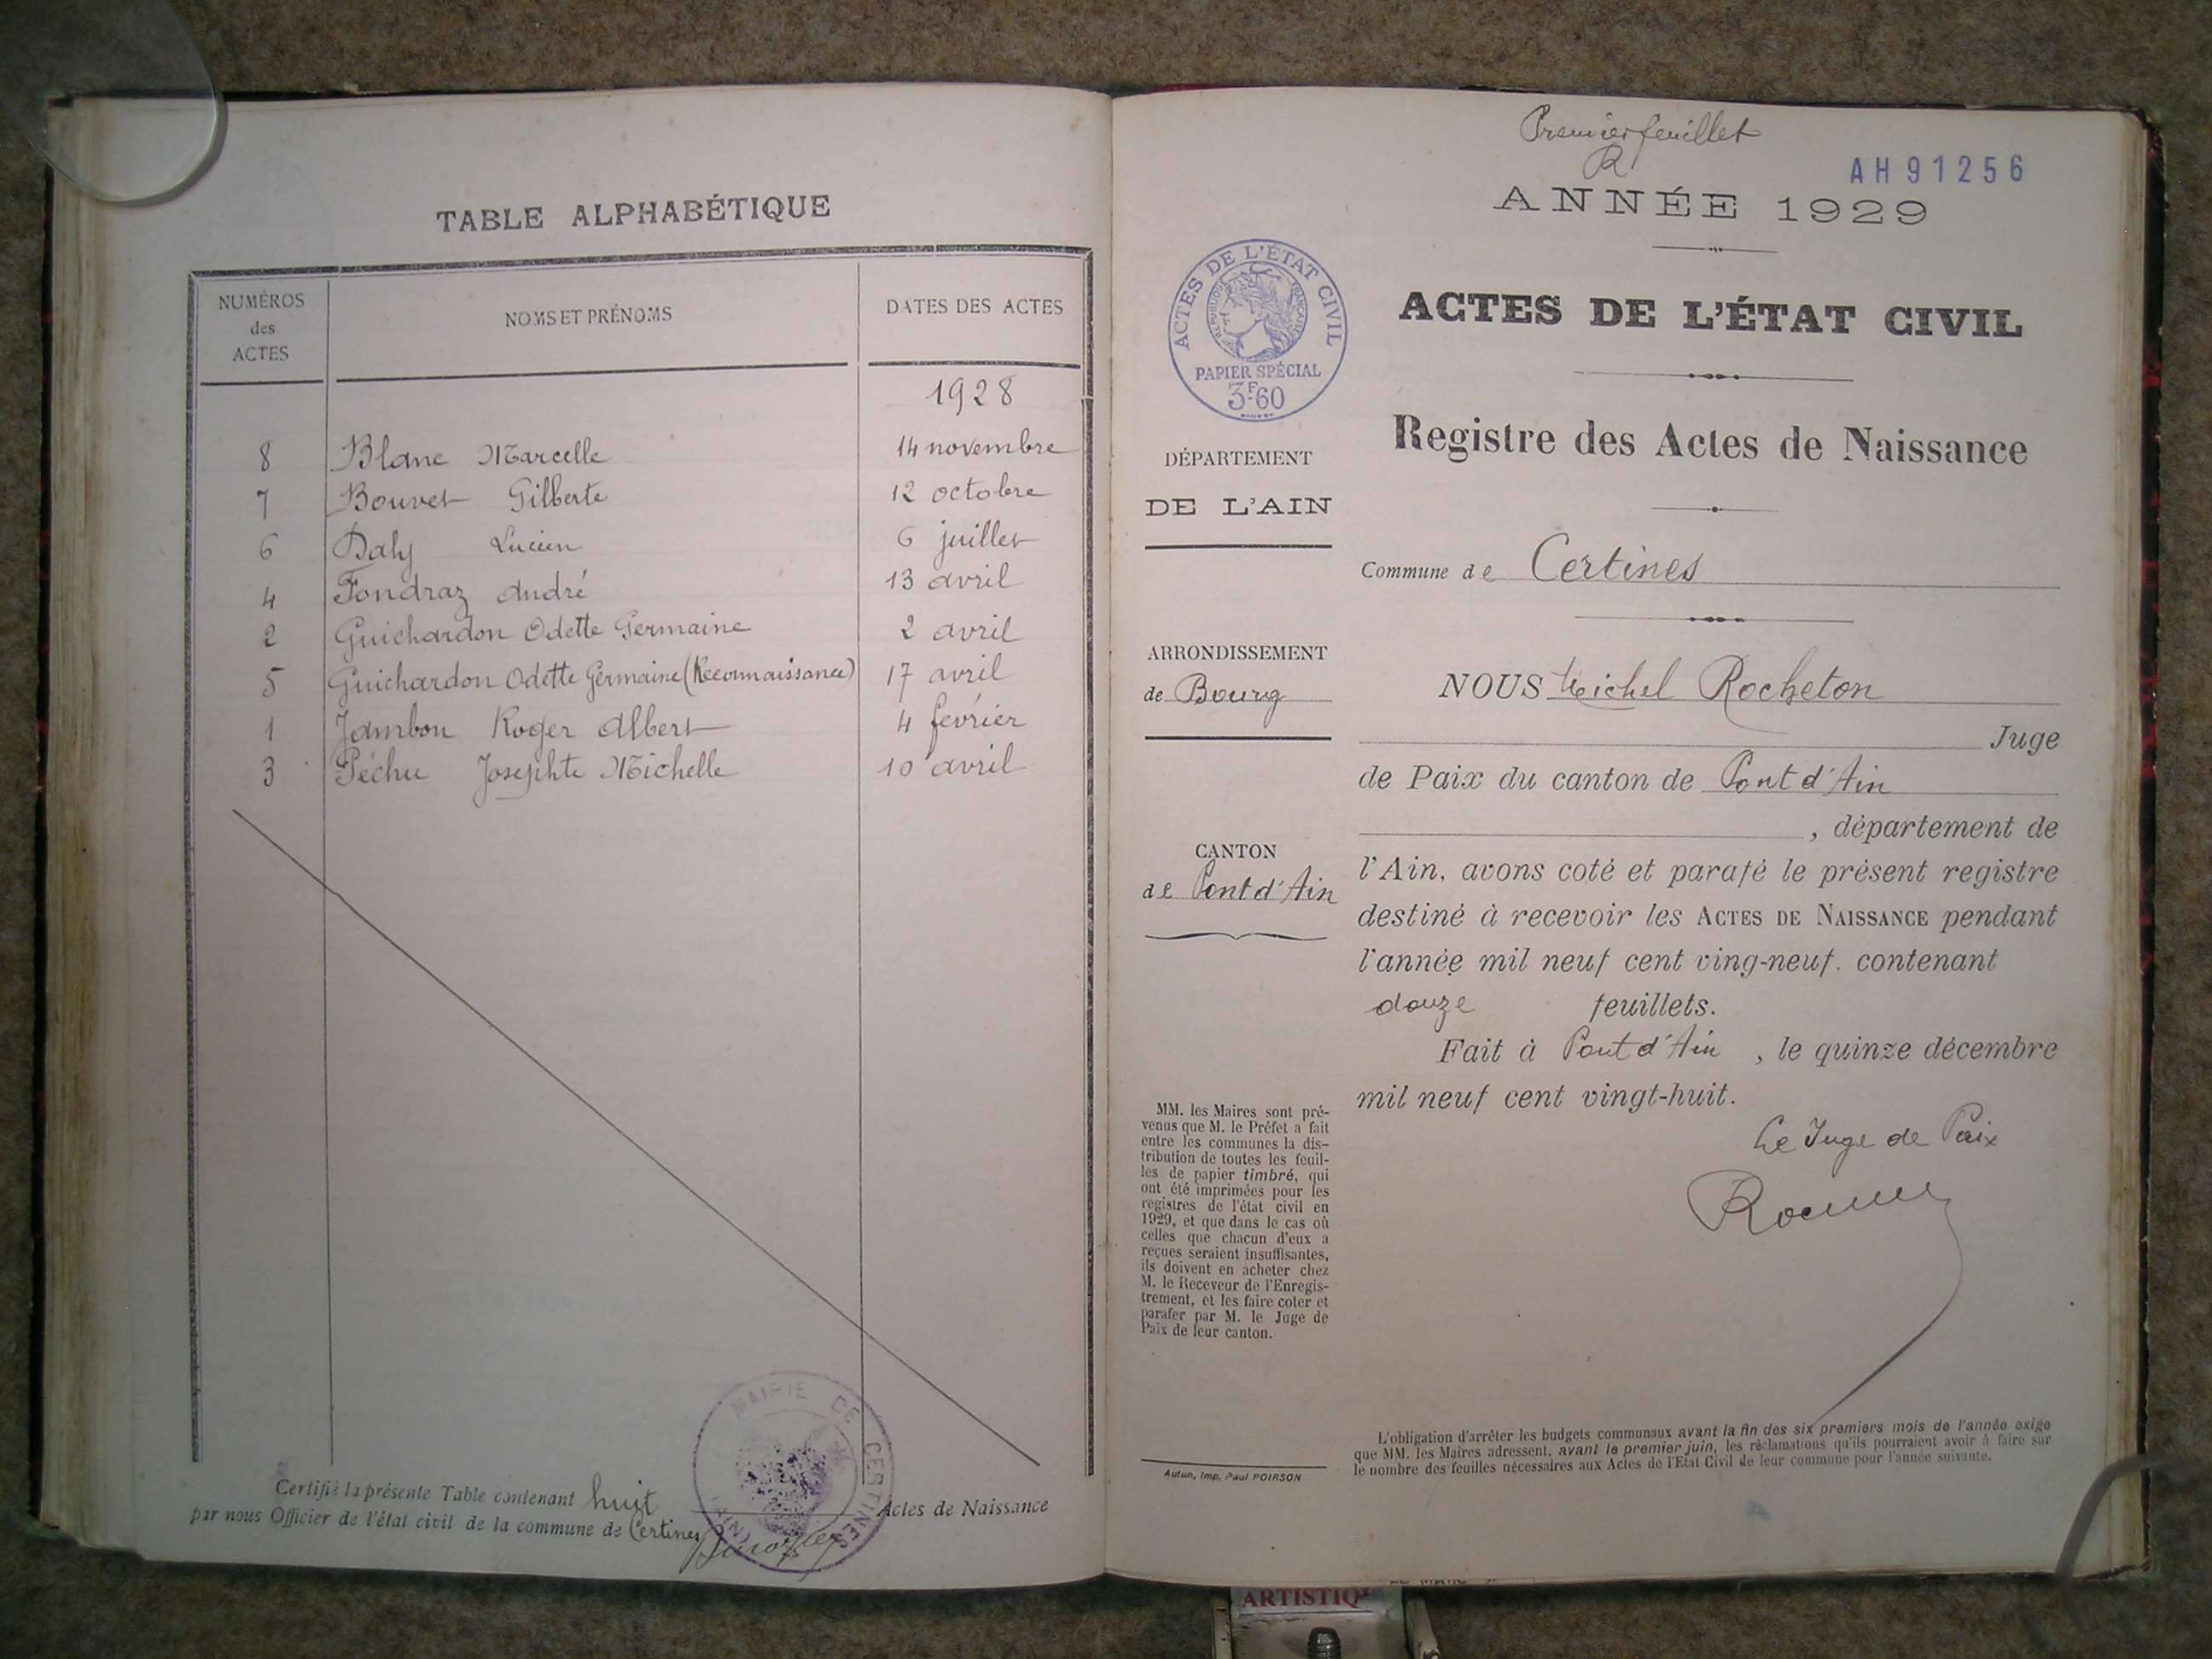 TABLE ALPHABÉTIQUE
NUMÉROS des ACTES
NOMS ET PRÉNOMS
DATES DES ACTES
1928
8 Blanc Marcelle 14 novembre
7 Bouvet Gilberte 12 octobre
6 Daly Lucien 6 juillet
4 Fondraz André 13 avril
2 Guichardon Odette Germaine 2 avril
5 Guichardon Odette Germaine (Reconnaissance) 17 avril
1 Jambon Roger Albert 4 février
3 Péchu Josephte Michelle 10 avril
MAIRIE DE CERTINES (AIN)
Certifié la présente Table contenant huit Actes de Naissance
par nous Officier de l'état civil de la commune de Certines
Premier feuillet
R
AH91256
ANNÉE 1929
ACTES DE L'ÉTAT CIVIL
RÉPUBLIQUE FRANÇAISE
PAPIER SPÉCIAL
3F60
ACTES DE L'ÉTAT CIVIL
Registre des Actes de Naissance
DÉPARTEMENT
DE L'AIN
Commune de Certines
ARRONDISSEMENT
de Bourg
CANTON
de Pont d'Ain
NOUS Michel Rocheton
Juge
de Paix du canton de Pont d'Ain
, département de
l'Ain, avons coté et parafé le présent registre
destiné à recevoir les ACTES DE NAISSANCE pendant
l'année mil neuf cent ving-neuf. contenant
douze feuillets.
Fait à Pont d'Ain , le quinze décembre
mil neuf cent vingt-huit.
Le Juge de Paix
MM. les Maires sont pré-
venus que M. le Préfet a fait
entre les communes la dis-
tribution de toutes les feuil-
les de papier timbré, qui
ont été imprimées pour les
registres de l'état civil en
1929, et que dans le cas où
celles que chacun d'eux a
reçues seraient insuffisantes,
ils doivent en acheter chez
M. le Receveur de l'Enregis-
trement, et les faire coter et
parafer par M. le Juge de
Paix de leur canton.
Autun, Imp. Paul POIRSON
L'obligation d'arrêter les budgets communaux avant la fin des six premiers mois de l'année exige
que MM. les Maires adressent, avant le premier juin, les réclamations qu'ils pourraient avoir à faire sur
le nombre des feuilles nécessaires aux Actes de l'Etat Civil de leur commune pour l'année suivante.
ARTISTIQ